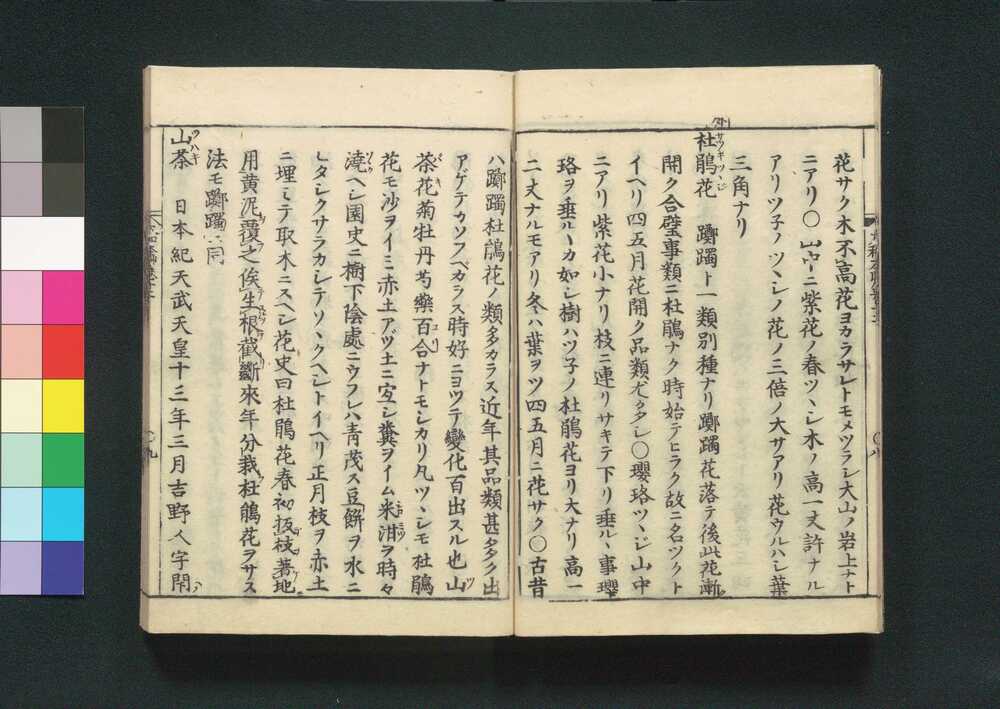 花サク木不高花ヨカラサレトモメツラシ大山ノ岩上ナト
ニアリ〇山中ニ紫花ノ春ツヽシ木ノ高一丈許ナル
アリツ子ノツヽシノ花ノ三倍ノ大サアリ花ウルハシ葉
三角ナリ
外
杜鵑花 躑躅ト一類別種ナリ躑躅花落テ後此花漸
サツキツヽジ
開ク合璧事類ニ杜鵑ナク時始テヒラク故ニ名ツクト
イヘリ四五月花開ク品類尤多シ〇瓔珞ツヽジ山中
ニアリ紫花小ナリ枝ニ連リサキテ下リ垂ルヽ事瓔
珞ヲ垂ルヽカ如シ樹ハツ子ノ杜鵑花ヨリ大ナリ高一
二丈ナルモアリ冬ハ葉ヲツ四五月ニ花サク〇古昔
ハ躑躅杜鵑花ノ類多カラス近年其品類甚多ク出
アゲテカソフベカラス時好ニヨツテ變化百出スル也山
茶花菊牡丹芍藥百合ナトモシカリ凡ツヽシモ杜鵑
花モ沙ヲイミ赤土アヅ土ニ宜シ糞ヲイム米泔ヲ時々
澆ヘシ園史ニ樹下陰處ニウフレハ青茂ス豆餅ヲ水ニ
ヒタシクサラカシテソヽクヘシトイヘリ正月枝ヲ赤土
ニ埋ミテ取木ニスヘシ花史曰杜鵑花春初扳枝著地
用黄泥覆之俟生根截斷來年分栽杜鵑花ヲサス
法モ躑躅ニ同
山茶 日本紀天武天皇十三年三月吉野人宇閇
ツハキ
〇九